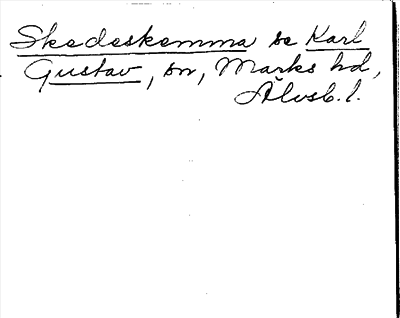 Skedeskamma se Karl
Gustav, sn, Marks hd,
Älvsb. l.